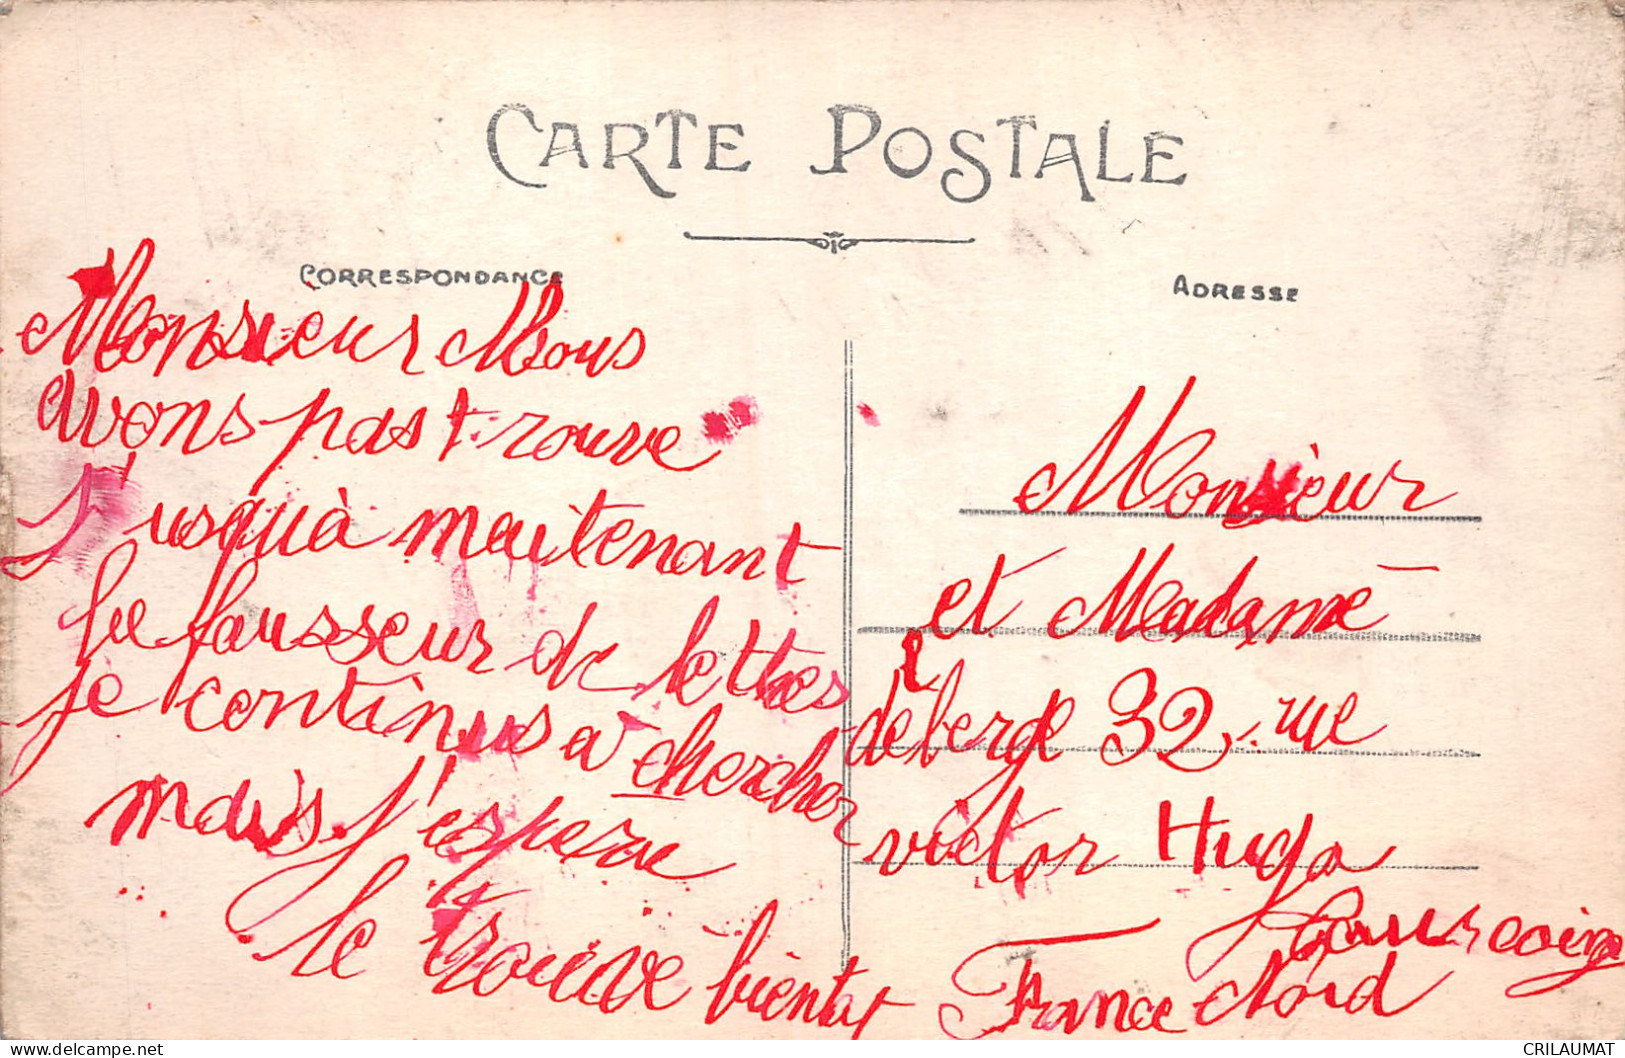 CARTE POSTALE
CORRESPONDANCE
Monsieur Nous
avons pas trouve
j'usquà maitenant
le fausseur de lettres
je continus a chercher
mais j'espere
le trouve bientot
ADRESSE
Monsieur
et Madame
deberge 32, rue
victor Hugo
Tourcoing
France Nord
delcampe.net
CRILAUMAT